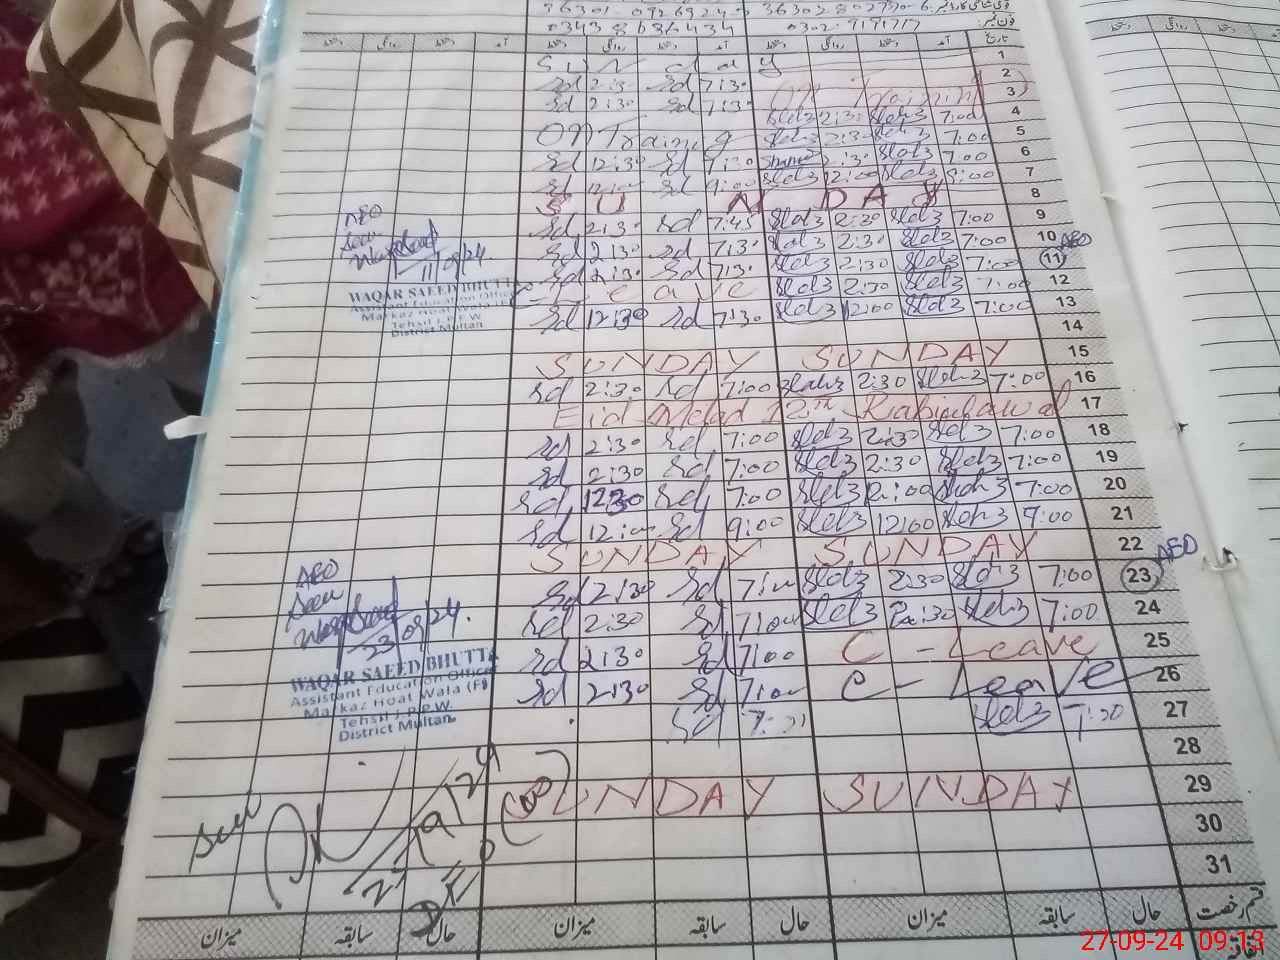 36302-802790-6 36301-0926924-5
0302-9191717 0343 8686434
تاریخ آمد دستخط روانگی دستخط آمد دستخط روانگی دستخط آمد دستخط روانگی دستخط
Sunday 1
Sd 2:30 Sd 7:30 2
Sd 2:30 Sd 7:30 On Training 3
Sld3 2:30 Sld3 7:00 4
On Training Sld3 2:30 Sld3 7:00 5
Sd 12:30 Sd 7:30 2:30 Sld3 7:00 6
Sd 12:00 Sd 9:00 Sld3 12:00 Sld3 9:00 7
SUNDAY 8
Sd 2:30 Sd 7:45 Sld3 2:30 Sld3 7:00 9
AEO
Seen
Sd 2:30 Sd 7:30 Sld3 2:30 Sld3 7:00 10
11/09/24
Sd 2:30 Sd 7:30 Sld3 2:30 Sld3 7:00 11 AEO
Leave Sld3 2:30 Sld3 7:00 12
WAQAR SAEED BHUTTA
Assistant Education Officer
Sd 12:30 Sd 7:30 Sld3 12:00 Sld3 7:00 13
Tehsil J.P.P.W.
District Multan
14
SUNDAY SUNDAY 15
Sd 2:30 Sd 7:00 Sld3 2:30 Sld3 7:00 16
Eid Melad 12th Rabiulawal 17
Sd 2:30 Sd 7:00 Sld3 2:30 Sld3 7:00 18
Sd 2:30 Sd 7:00 Sld3 2:30 Sld3 7:00 19
Sd 12:30 Sd 7:00 Sld3 12:00 Sld3 7:00 20
Sd 12:00 Sd 9:00 Sld3 12:00 Sld3 9:00 21
SUNDAY SUNDAY 22
AEO
Seen
Sd 2:30 Sd 7:00 Sld3 2:30 Sld3 7:00 23 AEO
23/09/24.
Sd 2:30 Sd 7:00 Sld3 2:30 Sld3 7:00 24
Sd 2:30 Sd 7:00 C - Leave 25
WAQAR SAEED BHUTTA
Assistant Education Officer
Sd 2:30 Sd 7:00 C - Leave 26
Tehsil J.P.P.W.
District Multan
Sd 7:00 Sld3 7:00 27
28
SUNDAY SUNDAY 29
Seen
30
31
قسم رخصت حال سابقہ میزان حال سابقہ میزان حال سابقہ میزان
اتفاقیہ
27-09-24 09:13